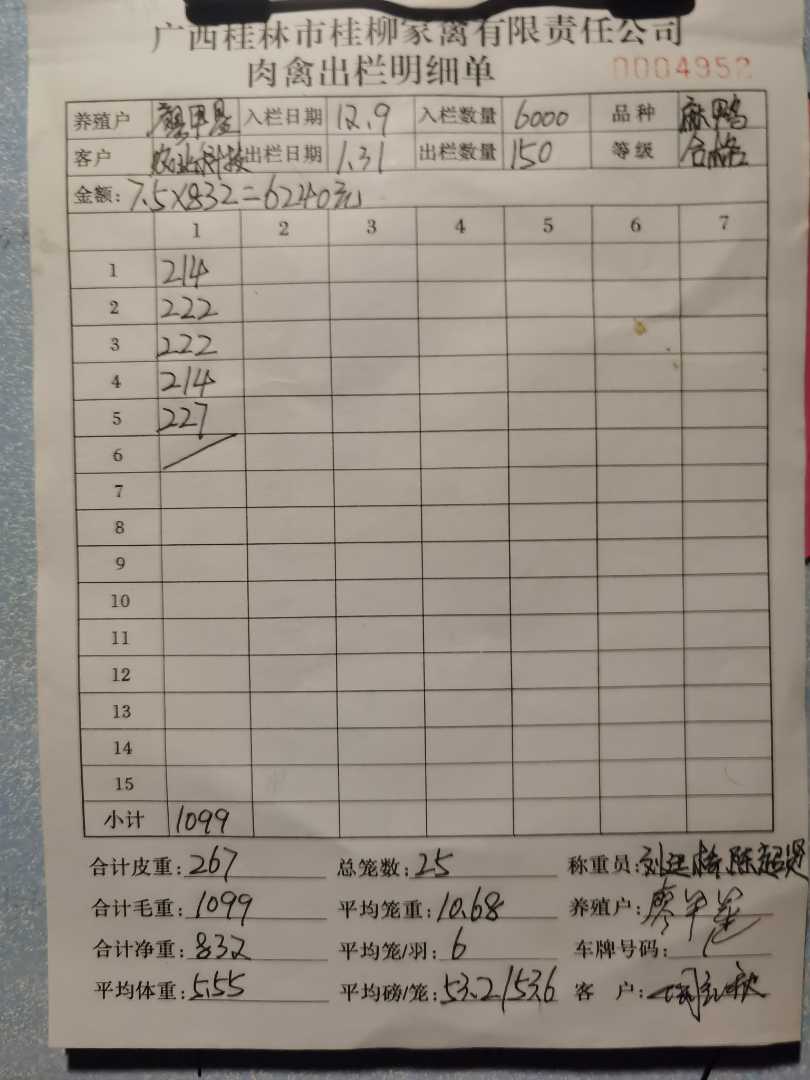 广西桂林市桂柳家禽有限责任公司
肉禽出栏明细单 0004952
养殖户 廖甲星 入栏日期 12.9 入栏数量 6000 品种 麻鸭
客户 农业科技 出栏日期 1.31 出栏数量 150 等级 合格
金额: 7.5×832=6240元
1 2 3 4 5 6 7
1 214
2 222
3 222
4 214
5 227
6
7
8
9
10
11
12
13
14
15
小计 1099
合计皮重: 267 总笼数: 25 称重员:
合计毛重: 1099 平均笼重: 10.68 养殖户:
合计净重: 832 平均笼/羽: 6 车牌号码:
平均体重: 5.55 平均磅/笼: 53.2/53.6 客户: